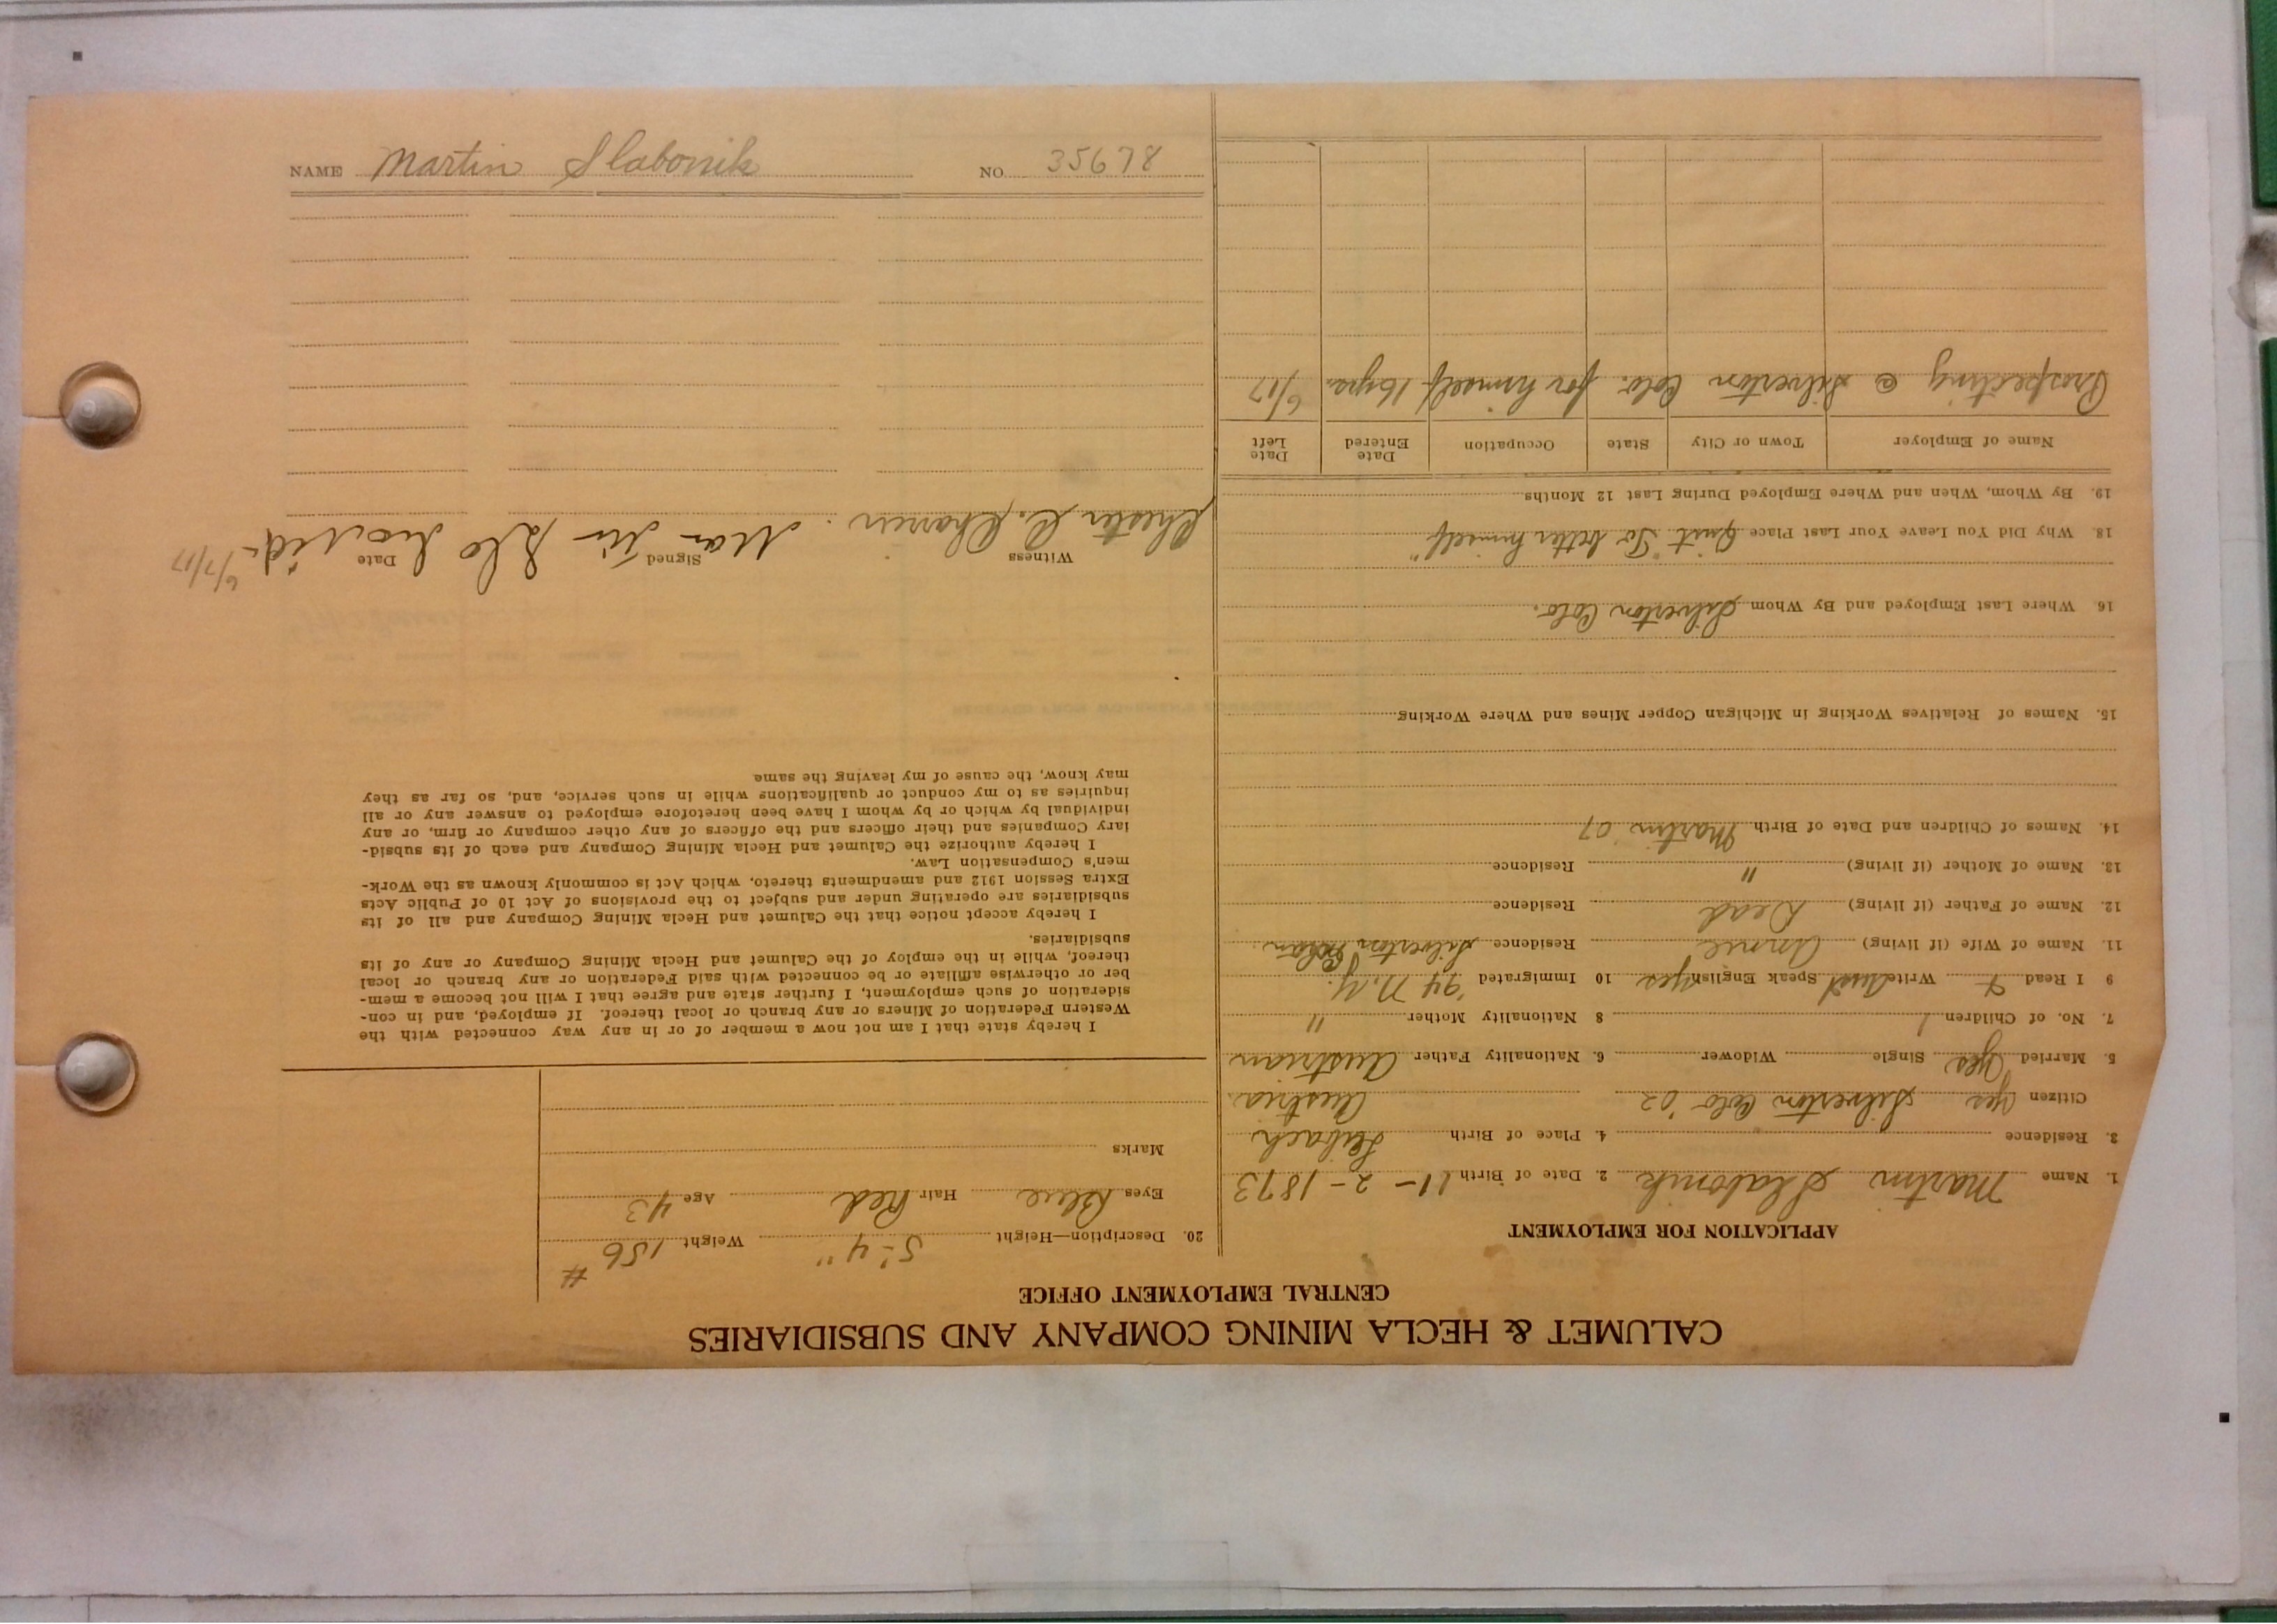 CALUMET & HECLA MINING COMPANY AND SUBSIDIARIES
CENTRAL EMPLOYMENT OFFICE
APPLICATION FOR EMPLOYMENT
1. Name Martin Slabonik 2. Date of Birth 11-2-1873
3. Residence 4. Place of Birth Leibach
Citizen Yes Silverton Colo '02 Austria.
5. Married Yes Single Widower 6. Nationality Father Austrian
7. No. of Children 1 8 Nationality Mother "
9 I Read & Write Aust Speak English yes 10 Immigrated '94 N.Y.
11. Name of Wife (if living) Annie Residence Silverton
12. Name of Father (if living) Dead Residence
13. Name of Mother (if living) " Residence
14. Names of Children and Date of Birth Martin 07
15. Names of Relatives Working in Michigan Copper Mines and Where Working
16. Where Last Employed and By Whom Silverton Colo.
18. Why Did You Leave Your Last Place Quit "To better himself"
19. By Whom, When and Where Employed During Last 12 Months
Name of Employer Town or City State Occupation Date Entered Date Left
Prospecting @ Silverton Colo. for himself 16 yrs. 6/17
20. Description—Height 5'-4" Weight 156 #
Eyes Blue Hair Red Age 43
Marks
I hereby state that I am not now a member of or in any way connected with the
Western Federation of Miners or any branch or local thereof. If employed, and in con-
sideration of such employment, I further state and agree that I will not become a mem-
ber or otherwise affiliate or be connected with said Federation or any branch or local
thereof, while in the employ of the Calumet and Hecla Mining Company or any of its
subsidiaries.
I hereby accept notice that the Calumet and Hecla Mining Company and all of its
subsidiaries are operating under and subject to the provisions of Act 10 of Public Acts
Extra Session 1912 and amendments thereto, which Act is commonly known as the Work-
men's Compensation Law.
I hereby authorize the Calumet and Hecla Mining Company and each of its subsid-
iary Companies and their officers and the officers of any other company or firm, or any
individual by which or by whom I have been heretofore employed to answer any or all
inquiries as to my conduct or qualifications while in such service, and, so far as they
may know, the cause of my leaving the same
Witness Signed Date
Chester C. 6/7/17
NAME Martin Slabonik NO. 35678